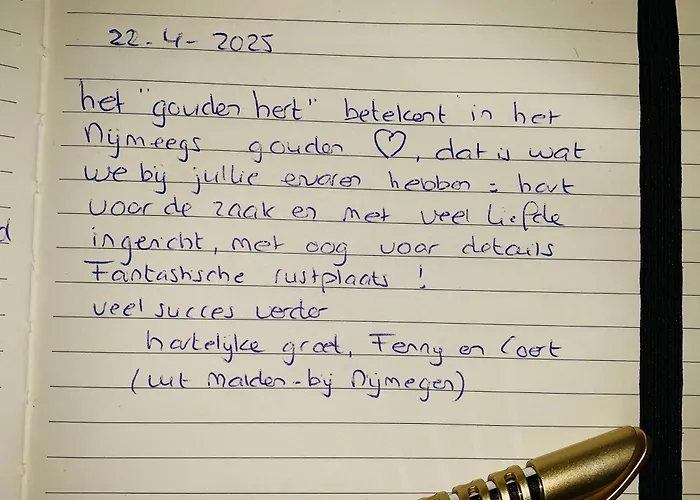 22-4-2025
het "gouden hert" betekent in het
Nijmeegs gouden ♡, dat is wat
we bij jullie ervaren hebben = hart
voor de zaak en met veel liefde
ingericht, met oog voor details
Fantastische rustplaats !
veel succes verder
hartelijke groet, Fenny en Coert
(uit Malden-bij Nijmegen)
d